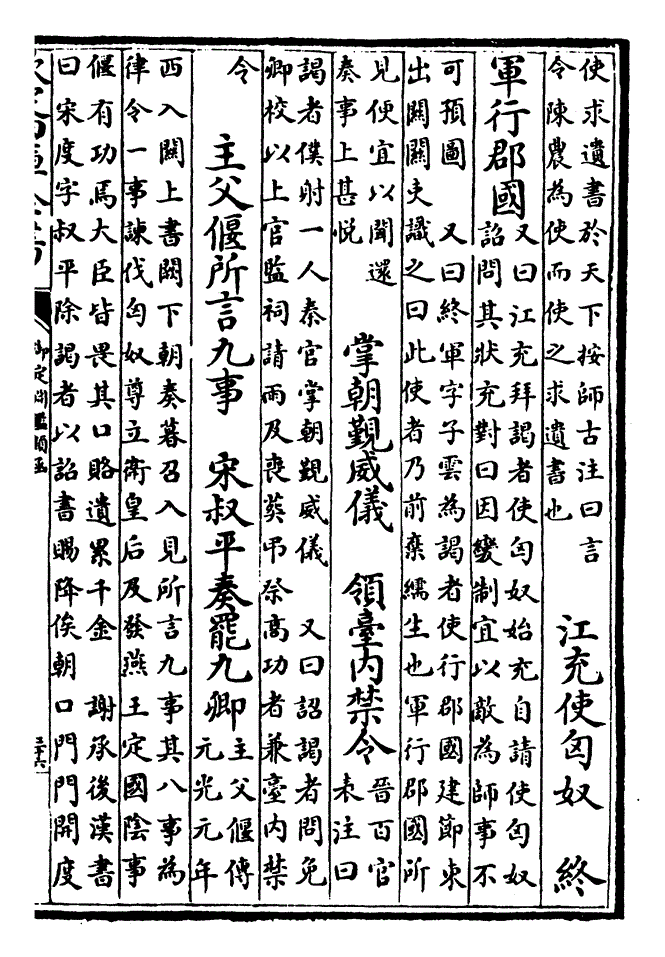 使求遺書於天下按師古注曰言
令陳農為使而使之求遺書也
江充使匈奴　終
軍行郡國
又曰江充拜謁者使匈奴始充自請使匈奴
詔問其狀充對曰因變制宜以敵為師事不
可預圖　又曰終軍字子雲為謁者使行郡國建節東
出關關吏識之曰此使者乃前棄繻生也軍行郡國所
見便宜以聞還
奏事上甚悅
掌朝覲威儀　領臺內禁令
晉百官
表注曰
謁者僕射一人秦官掌朝覲威儀　又曰詔謁者問免
卿校以上官監祠請雨及喪葬弔祭高功者兼臺內禁
令
主父偃所言九事　宋叔平奏罷九卿
主父偃傳
元光元年
西入關上書闕下朝奏暮召入見所言九事其八事為
律令一事諫伐匈奴尊立衛皇后及發燕王定國陰事
偃有功焉大臣皆畏其口賂遺累千金　謝承後漢書
曰宋度字叔平除謁者以詔書賜降俟朝口門門開度